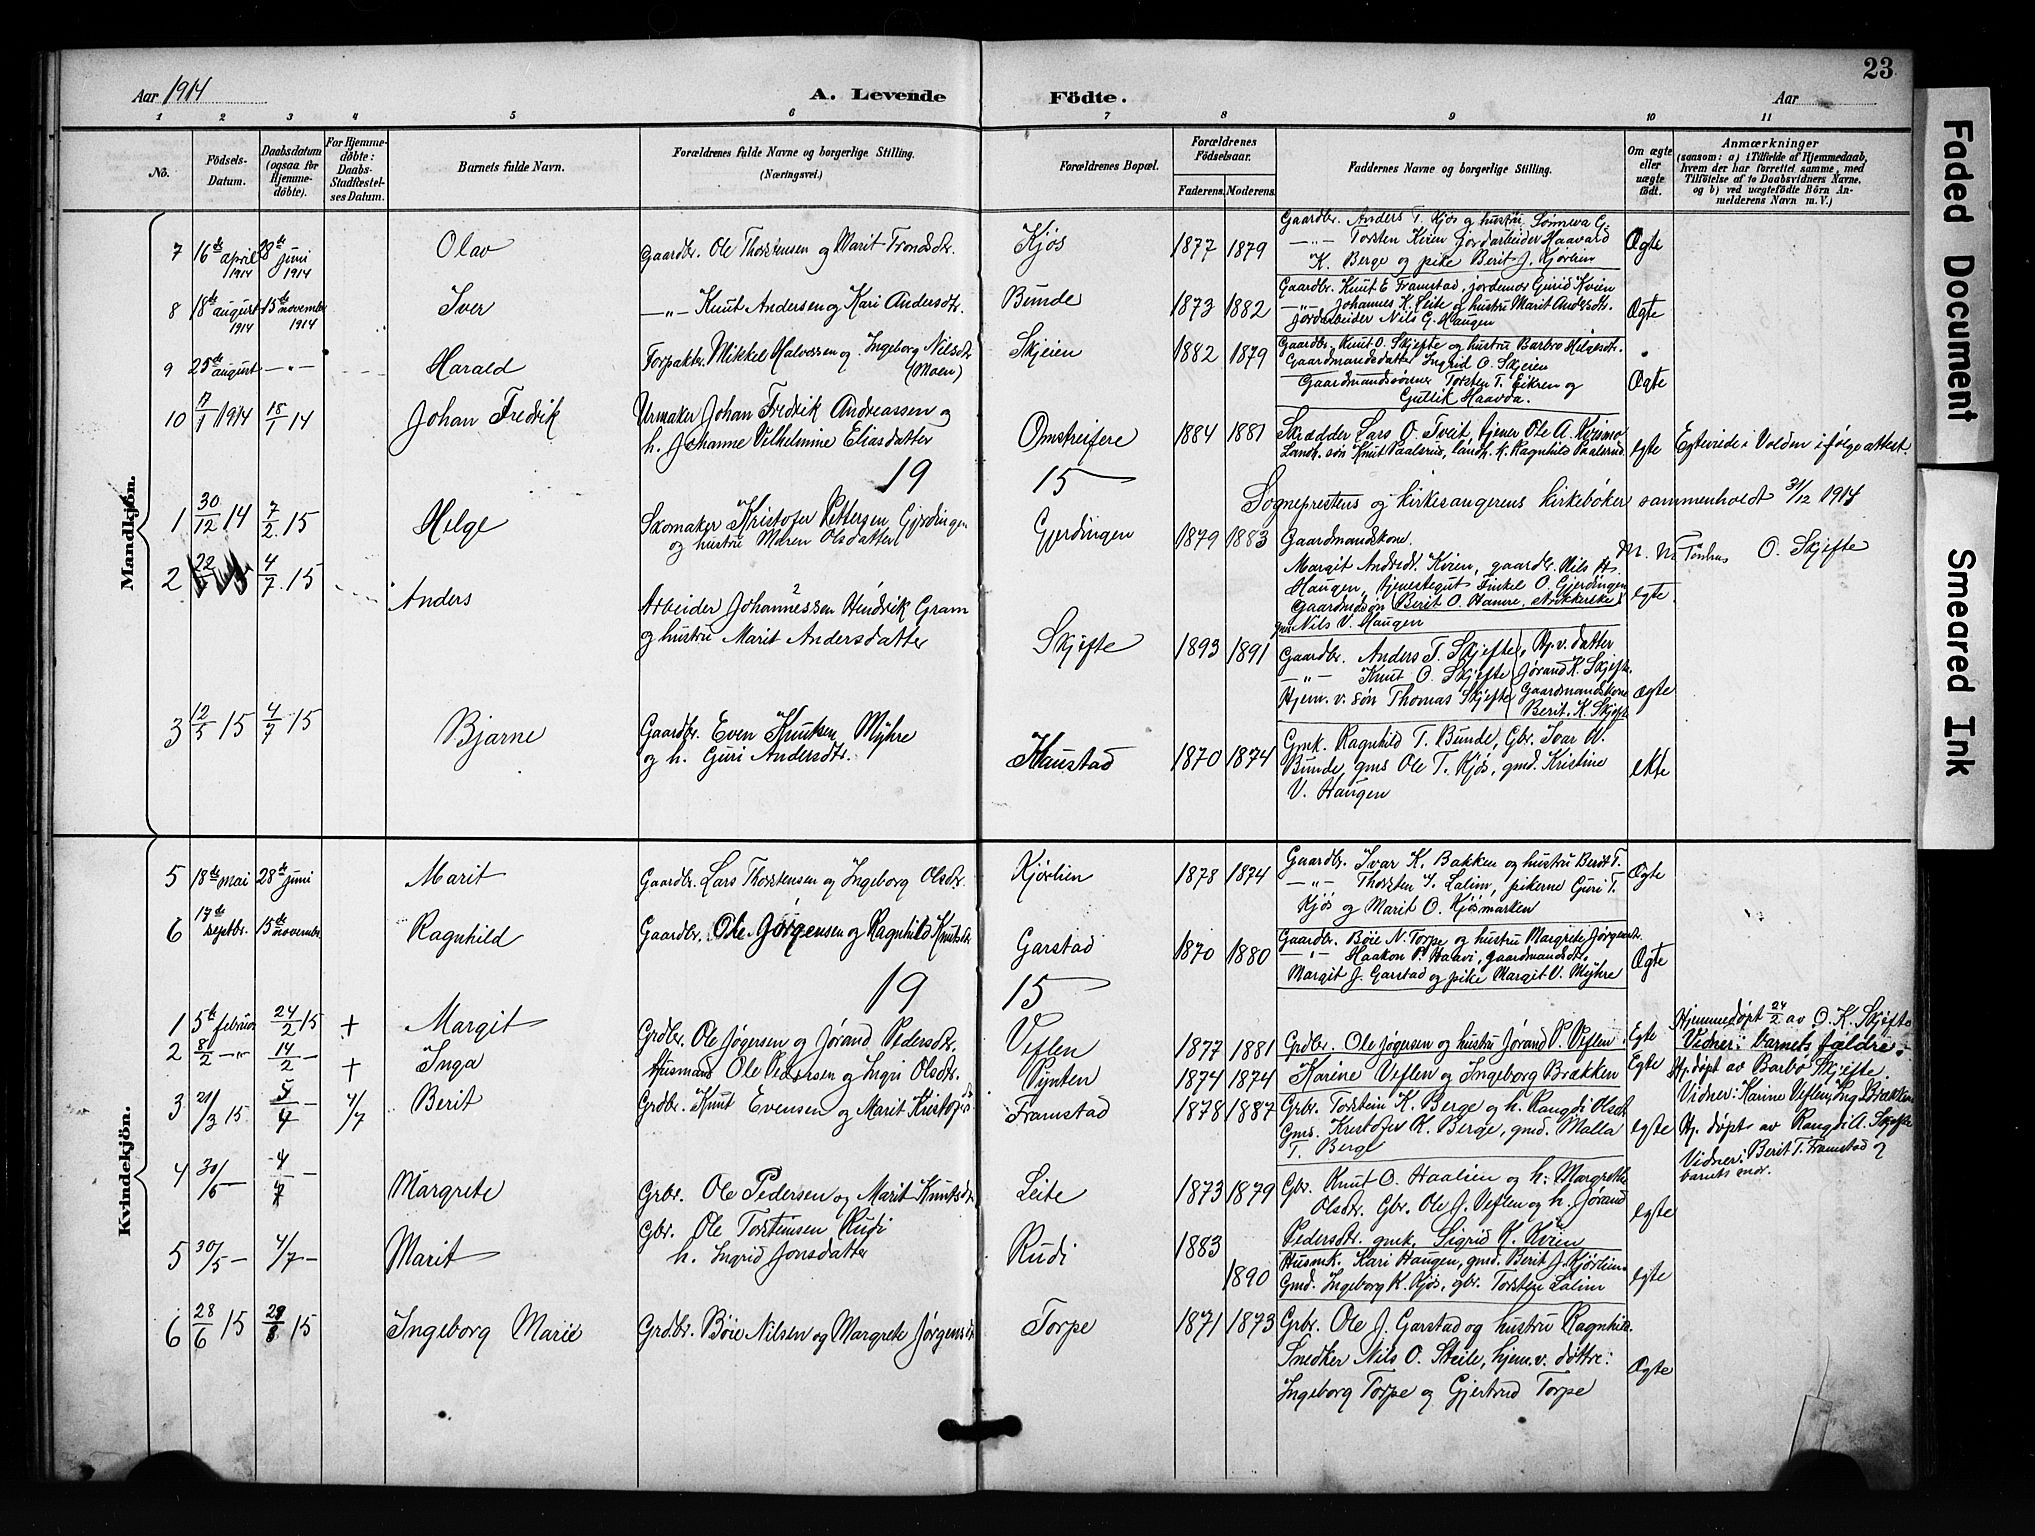 23
Aar 1914
A. Levende
Födte.
Aar
1 2 3 4 5 6 7 8 9 10 11
No.
Födsels-Datum.
Daabsdatum (ogsaa for Hjemme-döbte).
For Hjemme-döbte: Daabs-Stadfæstel-ses Datum.
Barnets fulde Navn.
Forældrenes fulde Navne og borgerlige Stilling.
(Næringsvei.)
Forældrenes Bopæl.
Forældrenes Födselsaar.
Faderens. Moderens.
Faddernes Navne og borgerlige Stilling.
Om ægte eller uægte födt.
Anmærkninger
(saasom: a) i Tilfælde af Hjemmedaab, hvem der har forrettet samme, med Tilföielse af to Daabsvidners Navne, og b) ved uægtefödte Börn An-melderens Navn m. V.)
Mandkjön.
7 16de april 1914 28de juni 1914 Olav Gaardbr. Ole Thorstensen og Marit Trondsdr. Kjös 1877 1879 Gaardbr. Anders T. Kjös og hustru Sönneva C. Ægte
—"— Torsten Kvien jordarbeider Haavald
K. Berge og pike Berit J. Kjörlien
8 18de august 1914 15de november 1914 Iver —"— Knut Andersen og Kari Andersdtr. Bunde 1873 1882 Gaardbr. Knut E Framstad, jordemor Gurid Kvien Ægte
—"— Johannes K. Leite og hustru Marit Andersdtr.
jordarbeider Nils G. Haugen
9 25de august —"— Harald Forpaktbr. Mikkel Halvorsen og Ingeborg Nilsdtr. (Moen) Skjeien 1882 1879 Gaardbr. Knut O. Skjefte og hustru Barbro Helgesdtr.
Gaardmandsdatter Ingrid O. Skjeien
Gaardmandssönner Torsten T. Eikren og Ægte
Gullik Haavda.
10 17/1 1914 18/1 14 Johan Fredrik Urmaker Johan Fredrik Andreassen og
h. Johanne Vilhelmine Eliasdatter Omstreifere 1884 1881 Skrædder Lars O. Tveit, tjener Ole A. Kvismo
Landh. sön Knut Paalsrud, landh. k. Ragnhild Paalsrud egte Egteviede i Volden ifölge attest.
19 15
Sogneprestens og kirkesangerens kirkeböker sammenholdt 31/12 1914
M. N. Tönhus O. Skjefte
1 30/12 14 7/2 15 Helge Skomaker Kristofer Pettersen Gjerdingen
og hustru Maren Olsdatter Gjerdingen 1879 1883 Gaardmandskone.
Margit Andredt. Kvien, gaardbr. Nils H.
Haugen, tjenestegut Finkel O. Gjerdingen egte.
Gaardmdsön (Berit O. Hamre,
Nils V. Haugen
2 22 4/7 15 Anders Arbeider Johannessen Hendrik Gram
og hustru Marit Andersdatter Skjefte 1893 1891 Gaardbr. Anders T. Skjefte, Hj. v. datter
—"— Knut O. Skjefte Jörand K. Skjefte
Hjem. v. sön Thomas Skjefte Gaardmandskone ægte
Berit K. Skjefte
3 12/5 15 4/7 15 Bjarne Gaardbr. Even Knutsen Myhre
og h. Guri Andersdtr. Haustad 1870 1874 Gmk. Ragnhild T. Bunde, Gbr. Ivar H.
Bunde, gms Ole T. Kjös, gmd. Kristine ekte
V. Haugen
Kvindekjön.
5 18de mai 28de juni Marit Gaardbr. Lars Thorstensen og Ingeborg Olsdr. Kjörlien 1878 1874 Gaardbr. Ivar K. Bakken og hustru Berit T. Ægte
—"— Thorsten I. Lalim, pikerne Guri T.
Kjös og Marit O. Kjösmarken
6 17de septbr. 15de novembr. Ragnhild Gaardbr. Ole Jörgensen og Ragnhild Knutsdr Garstad 1870 1880 Gaardbr. Böie N. Torpe og hustru Margrete Jörgensdr.
—"— Haakon P. Haavi, gaardmandsdtr. Ægte
Margit J. Garstad og pike Margit V. Myhre
19 15
1 5te februar 24/2 15 + Margit Grdbr. Ole Jögersen og Jörand Pedersdtr. Veflen 1877 1881 Grdbr. Ole Jögersen og hustru Jörand P. Veflen Egte Hjemmedöpt 24/2 av O. K. Skjefte
Vidner: barnets fældre.
2 8/2 —"— 14/2 — + Inga Husmand Ole Pedersen og Ingri Olsdtr. Pynten 1874 1874 Karine Veflen og Ingeborg Brækken Egte Hj. döpt av Barbo Skjefte
Vidner: Karine Veflen, Ing. Brækken
3 21/3 15 5/4 — 4/7 Berit Grdbr. Knut Evensen og Marit Kristofersd. Framstad 1878 1887 Grbr. Torstein K. Berge og h. Rangdi Olsdt.
Gms. Kristofer K. Berge, gmd. Malla egte Hj. döpt av Rangdi A. Skjefte
T. Berge Vidner: Berit T. Framstad og
barnets mor.
4 30/5 — 4/7 — Margrete Grbr. Ole Pedersen og Marit Knutsdt. Leite 1873 1879 Gbr. Knut O. Haalien og h. Margrethe
Olsdt. Gbr. Ole J. Veflen og h. Jörand egte
Pedersdt. gmk. Sigrid K. Kvien
5 30/5 — 4/7 — Marit Gbr. Ole Torstensen Rudi
h. Ingrid Jonsdatter Rudi 1883 1890 Husmk. Kari Haugen, gmd. Berit J. Kjörlien
Gmd. Ingeborg K. Kjös, gbr. Torsten Lalim egte
6 28/6 15 29/8 15 Ingeborg Marie Grdbr. Böie Nilsen og Margrete Jörgensdt Torpe 1871 1873 Grbr. Ole J. Garstad og hustru Ragnhild.
Snedker Nils O. Steile, hjem. v. döttre: Ægte
Ingeborg Torpe og Gjertrud Torpe
Faded Document
Smeared Ink